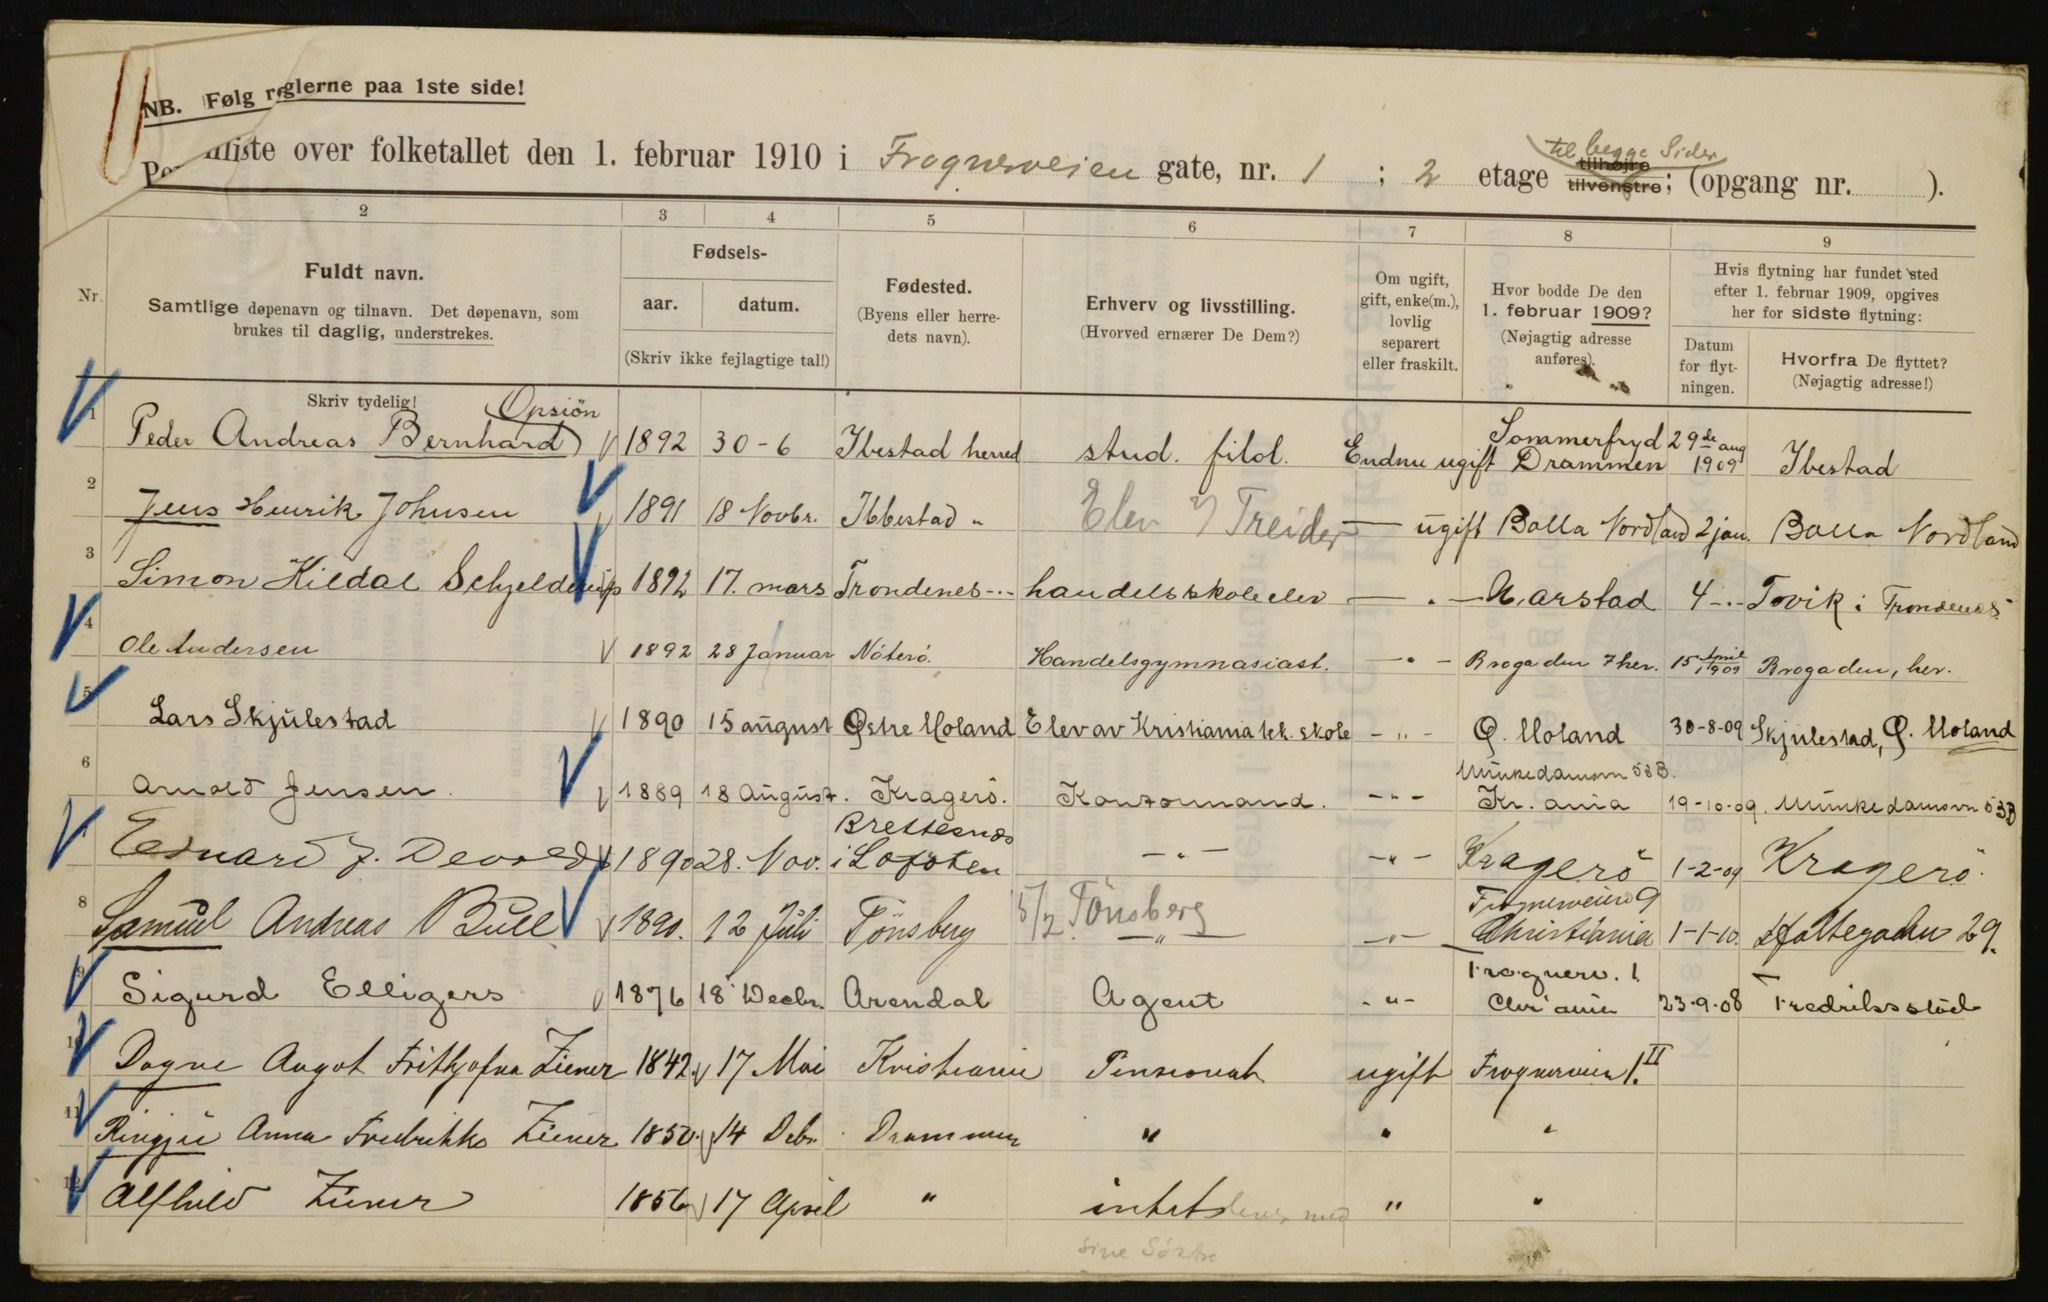 NB. Følg reglerne paa 1ste side!
liste over folketallet den 1. februar 1910 i Frognerveien gate, nr. 1 ; 2 etage tilhøjre tilvenstre til begge Sider; (opgang nr. ).
2 3 4 5 6 7 8 9
Nr. Fuldt navn. Samtlige døpenavn og tilnavn. Det døpenavn, som brukes til daglig, understrekes. Fødsels- aar. datum. (Skriv ikke fejlagtige tal!) Fødested. (Byens eller herredets navn). Erhverv og livsstilling. (Hvorved ernærer De Dem?) Om ugift, gift, enke(m.), lovlig separert eller fraskilt. Hvor bodde De den 1. februar 1909? (Nøjagtig adresse anføres). Hvis flytning har fundet sted efter 1. februar 1909, opgives her for sidste flytning: Datum for flytningen. Hvorfra De flyttet? (Nøjagtig adresse!)
Skriv tydelig!
1 Peder Andreas Bernhard Opsiön 1892 30-6 Ibestad herred stud. filol. Endnu ugift Sommerfryd Drammen 29de aug 1909 Ibestad
2 Jens Henrik Johnsen 1891 18 Novbr. Ibbestad " Elev v/ Treider — ugift Balla Nordland 2 jan. Balla Nordland
3 Simon Kildal Schjelderup 1892 17. mars Trondenes -"- handelsskoleelev — " — Harstad 4 -"- Tovik i Trondenes
4 Ole Andersen 1892 28 Januar Nöterö. Handelsgymnasiast. — " — Brogaden 7 her. 15 April 1909 Brogaden, her.
5 Lars Skjulestad 1890 15 august Østre Moland Elev av Kristiania tek. skole - " - Ø. Moland 30-8-09 Skjulestad, Ø. Moland
6 Arnold Jensen. 1889 18 August. Kragerö. Kontormand. - " - Munkedamsvn 53B. Kr.ania 19-10-09. Munkedamsvn 53B
7 Edvard J. Devold 1890 28. Nov. Brettesnæs i Lofoten — " — - " - Kragerö 1-2-09 Kragerö.
8 Samuel Andreas Bull 1890. 12 Juli Tönsberg 5/2 Tönsberg — " — - " - Frognerveien 9 Christiania 1-1-10. Holtegaden 29.
9 Sigurd Elligers 1876 18 Decbr. Arendal Agent - " - Frognerv. 1. Chr.ania 23-9-08 Fredriksstad
10 Dagne Angot Frithjofna Ziener 1842. 17 Mai Kristiania Pensionat ugift Frognerveien 1. II
11 Anna Fredrikke Ziener 1850. 14 Debr. Drammen " " "
12 Alfhild Ziener 1856 17 April " intet lever med sine Söstre " "